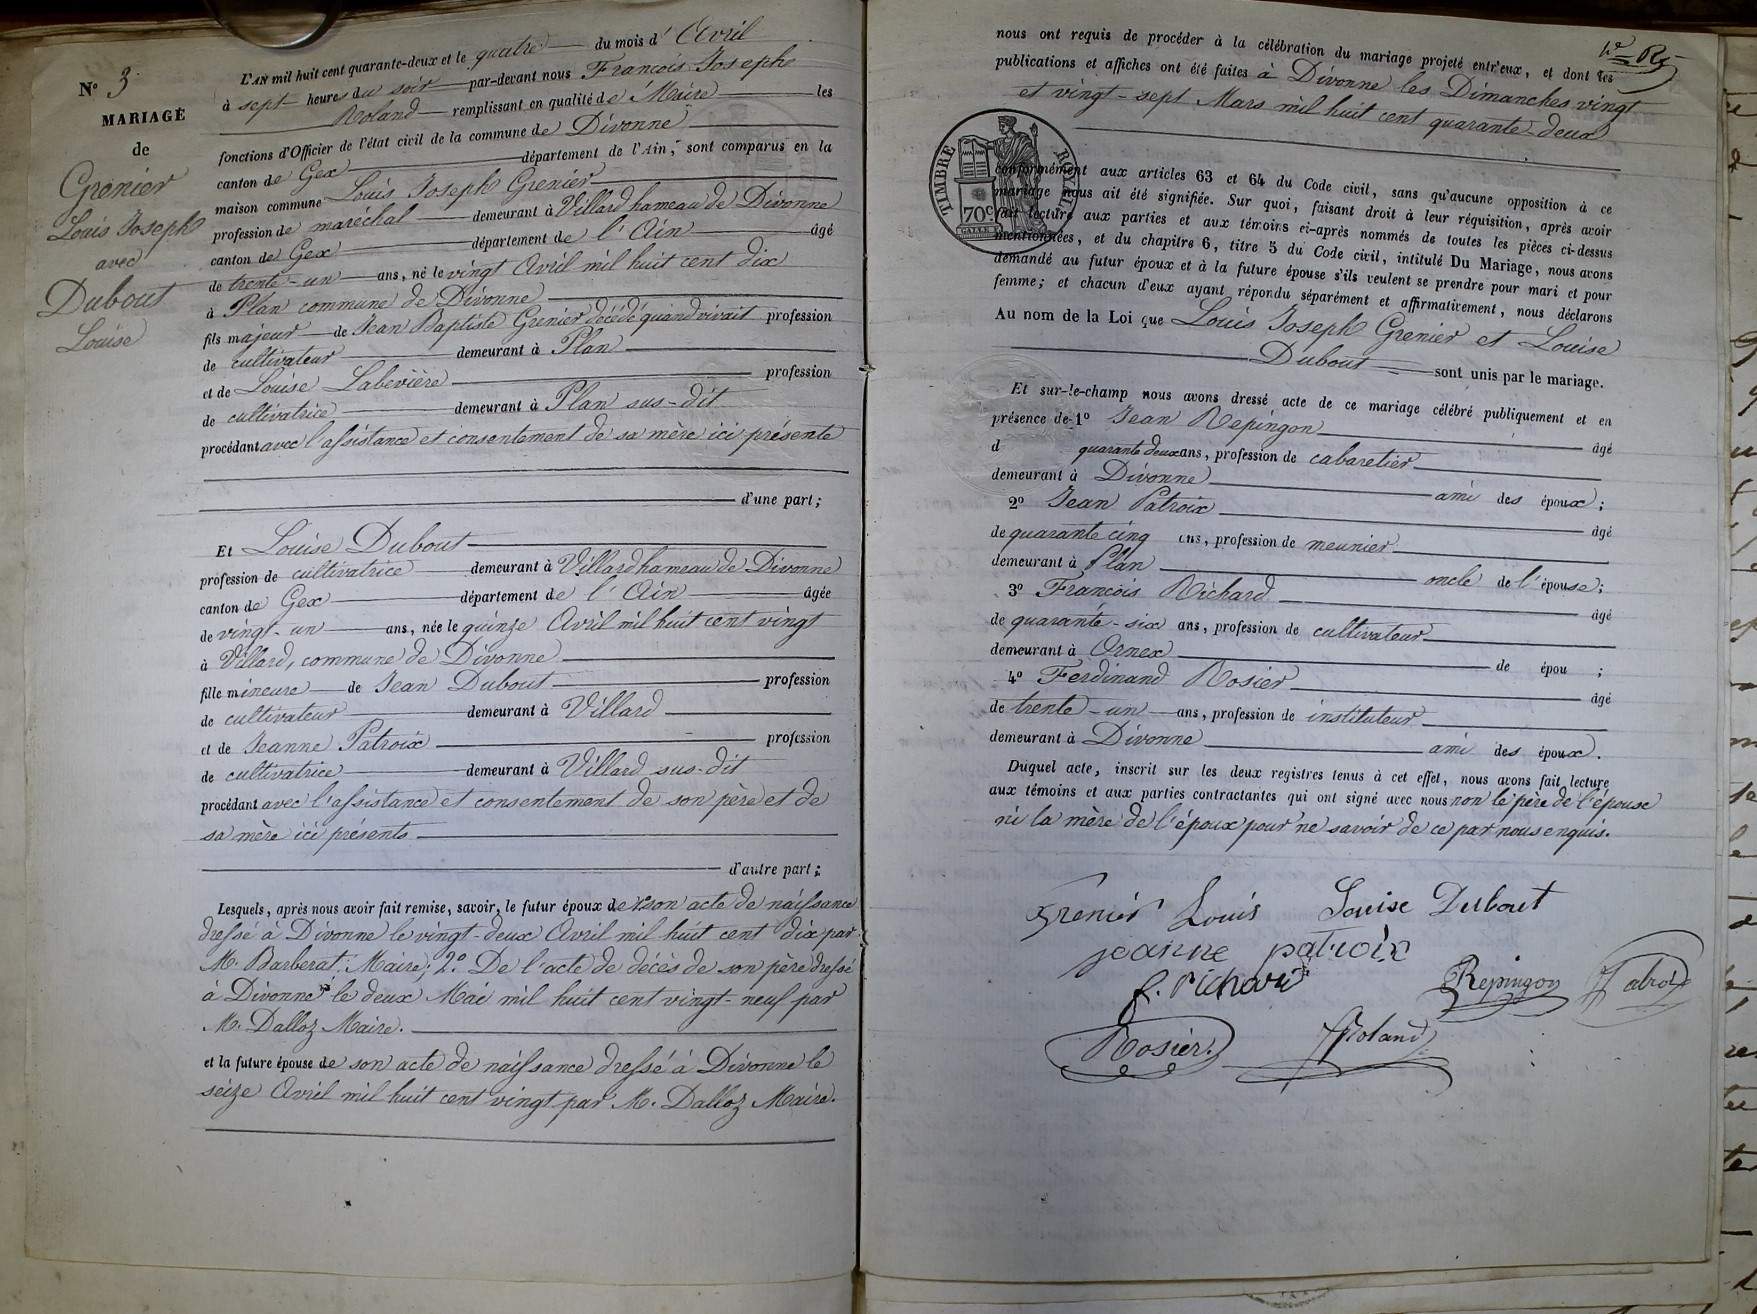 N° 3
MARIAGE
de
Grenier
Louis Joseph
avec
Dubout
Louise
L'AN mil huit cent quarante-deux et le quatre du mois d'Avril
à sept heures du soir par-devant nous François Joseph
Roland remplissant en qualité de Maire les
fonctions d'Officier de l'état civil de la commune de Divonne
canton de Gex département de l'Ain, sont comparus en la
maison commune Louis Joseph Grenier
profession de maréchal demeurant à Villard hameau de Divonne
canton de Gex département de l'Ain âgé
de trente-un ans, né le vingt Avril mil huit cent dix
à Plan commune de Divonne
fils majeur de Jean Baptiste Grenier décédé quand vivait profession
de cultivateur demeurant à Plan
et de Louise Labevière profession
de cultivatrice demeurant à Plan sus-dit
procédant avec l'assistance et consentement de sa mère ici présente
d'une part;
Et Louise Dubout
profession de cultivatrice demeurant à Villard hameau de Divonne
canton de Gex département de l'Ain âgée
de vingt-un ans, née le quinze Avril mil huit cent vingt
à Villard, commune de Divonne
fille mineure de Jean Dubout profession
de cultivateur demeurant à Villard
et de Jeanne Patroix profession
de cultivatrice demeurant à Villard sus-dit
procédant avec l'assistance et consentement de son père et de
sa mère ici présents
d'autre part;
Lesquels, après nous avoir fait remise, savoir, le futur époux de son acte de naissance
dressé à Divonne le vingt-deux Avril mil huit cent dix par
M. Barberat, Maire; 2° De l'acte de décès de son père dressé
à Divonne le deux Mai mil huit cent vingt-neuf par
M. Dalloz Maire.
et la future épouse de son acte de naissance dressé à Divonne le
seize Avril mil huit cent vingt par M. Dalloz Maire.
nous ont requis de procéder à la célébration du mariage projeté entr'eux, et dont les
publications et affiches ont été faites à Divonne les Dimanches vingt
et vingt-sept Mars mil huit cent quarante-deux
TIMBRE ROYAL
70c
conformément aux articles 63 et 64 du Code civil, sans qu'aucune opposition à ce
mariage nous ait été signifiée. Sur quoi, faisant droit à leur réquisition, après avoir
fait lecture aux parties et aux témoins ci-après nommés de toutes les pièces ci-dessus
mentionnées, et du chapitre 6, titre 5 du Code civil, intitulé Du Mariage, nous avons
demandé au futur époux et à la future épouse s'ils veulent se prendre pour mari et pour
femme; et chacun d'eux ayant répondu séparément et affirmativement, nous déclarons
Au nom de la Loi que Louis Joseph Grenier et Louise
Dubout sont unis par le mariage.
Et sur-le-champ nous avons dressé acte de ce mariage célébré publiquement et en
présence de 1° Jean Repingon âgé
d quarante deux ans, profession de cabaretier
demeurant à Divonne ami des époux;
2° Jean Patroix âgé
de quarante cinq ans, profession de meunier
demeurant à Plan oncle de l'épouse;
3° François Richard âgé
de quarante-six ans, profession de cultivateur
demeurant à Ornex de épou ;
4° Ferdinand Rosier âgé
de trente-un ans, profession de instituteur
demeurant à Divonne ami des époux.
Duquel acte, inscrit sur les deux registres tenus à cet effet, nous avons fait lecture
aux témoins et aux parties contractantes qui ont signé avec nous non le père de l'épouse
ni la mère de l'époux pour ne savoir de ce par nous enquis.
Grenier Louis Louise Dubout
jeanne patroix
f. Richard Repingon Patroix
Rosier. Roland